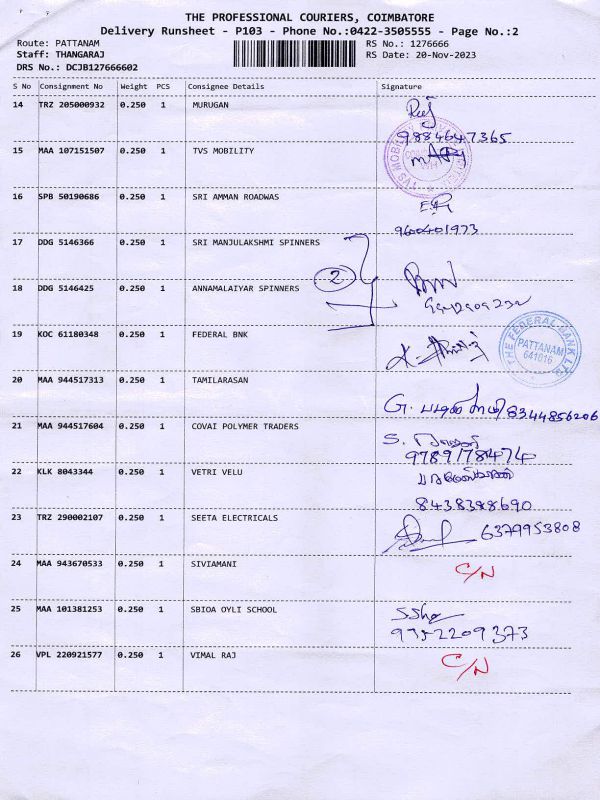 THE PROFESSIONAL COURIERS, COIMBATORE
Delivery Runsheet - P103 - Phone No.:0422-3505555 - Page No.:2
Route: PATTANAM RS No.: 1276666
Staff: THANGARAJ RS Date: 20-Nov-2023
DRS No.: DCJB127666602
S No Consignment No Weight PCS Consignee Details Signature
14 TRZ 205000932 0.250 1 MURUGAN
9884647365
15 MAA 107151507 0.250 1 TVS MOBILITY
TVS MOBILITY
16 SPB 50190686 0.250 1 SRI AMMAN ROADWAS
9600401973
17 DDG 5146366 0.250 1 SRI MANJULAKSHMI SPINNERS
2
18 DDG 5146425 0.250 1 ANNAMALAIYAR SPINNERS
19 KOC 61180348 0.250 1 FEDERAL BNK
THE FEDERAL BANK LTD.
PATTANAM
641016
20 MAA 944517313 0.250 1 TAMILARASAN
G. /8344856206
21 MAA 944517604 0.250 1 COVAI POLYMER TRADERS
S.
9789178474
22 KLK 8043344 0.250 1 VETRI VELU
8438388690
23 TRZ 290002107 0.250 1 SEETA ELECTRICALS
6379953808
24 MAA 943670533 0.250 1 SIVIAMANI
C/N
25 MAA 101381253 0.250 1 SBIOA OYLI SCHOOL
9352209373
26 VPL 220921577 0.250 1 VIMAL RAJ
C/N